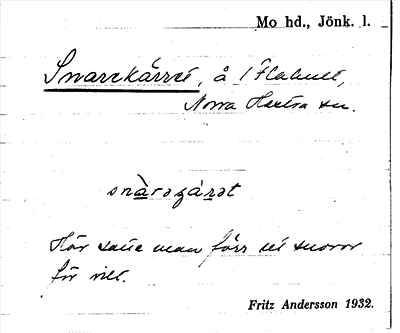 Mo hd., Jönk. l.
Snarekärret, å 1 Flahult,
Norra Hestra sn.
snàrəʒárət
Här satte man förr ut snaror
för vilt.
Fritz Andersson 1932.